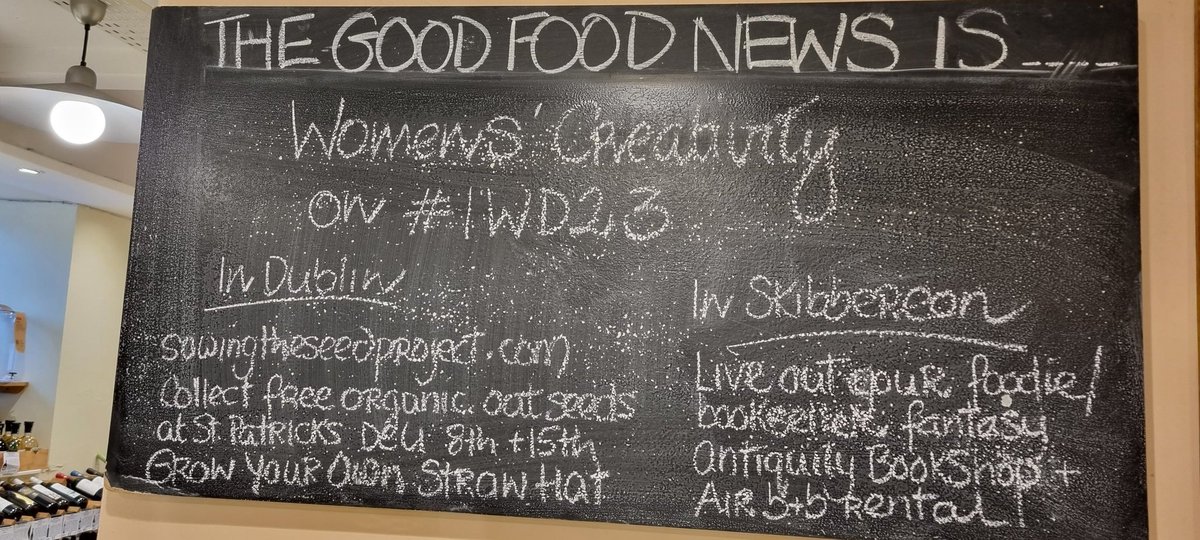 THE GOOD FOOD NEWS IS ....
Womens' Creativity
on #IWD23
In Dublin
sowingtheseedproject.com
Collect free organic oat seeds
at St. Patricks DCU 8th + 15th
GROW YOUR OWN STRAW HAT
In Skibbereen
Live out your foodie/
bookseller fantasy
Antiquity Bookshop +
AIR b+b rental!